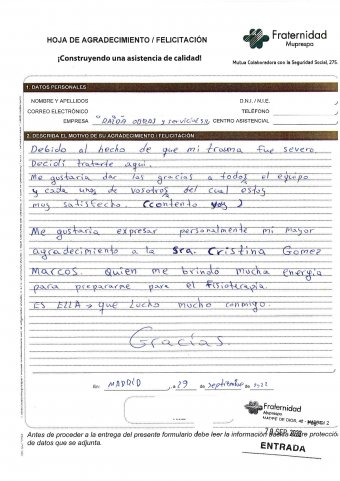 HOJA DE AGRADECIMIENTO / FELICITACIÓN
Fraternidad
Muprespa
¡Construyendo una asistencia de calidad!
Mutua Colaboradora con la Seguridad Social, 275
1. DATOS PERSONALES
NOMBRE Y APELLIDOS
D.N.I. / N.I.E.
CORREO ELECTRÓNICO
TELÉFONO
EMPRESA
"DAIDA OBRAS y servicios SL
CENTRO ASISTENCIAL
2. DESCRIBA EL MOTIVO DE SU AGRADECIMIENTO / FELICITACIÓN
Debido al hecho de que mi trauma fue severo.
Decidi tratarte aqui.
Me gustaria dar las gracias a todos el equipo
y cada uno de vosotros del cual estoy
muy satisfecho. (contento yo)
Me gustaria expresar personalmente mi mayor
agradecimiento a la Sra. Cristina Gomez
Marcos. Quien me brindo mucha energia
para prepararme para el fisioterapia.
ES ELLA → que Lucho mucho conmigo.
Gracias.
En: MADRID, a 29 de septiembre de 2022
Fraternidad
Muprespa
MADRE DE DIOS, 42 - MADRID 2
29 SEP. 2022
ENTRADA
Antes de proceder a la entrega del presente formulario debe leer la información sobre protecció
de datos que se adjunta.